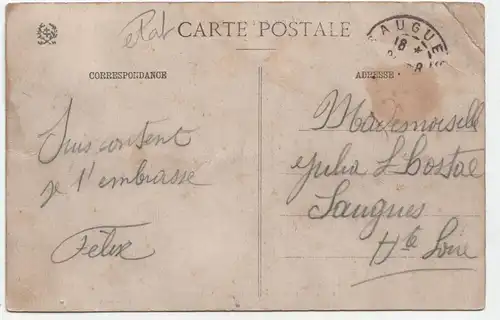 état
CARTE POSTALE
SAUGUES
18 *
CORRESPONDANCE
ADRESSE
Suis content
je t'embrasse
Félix
Mademoiselle
Julia L'Hostal
Saugues
Hte Loire